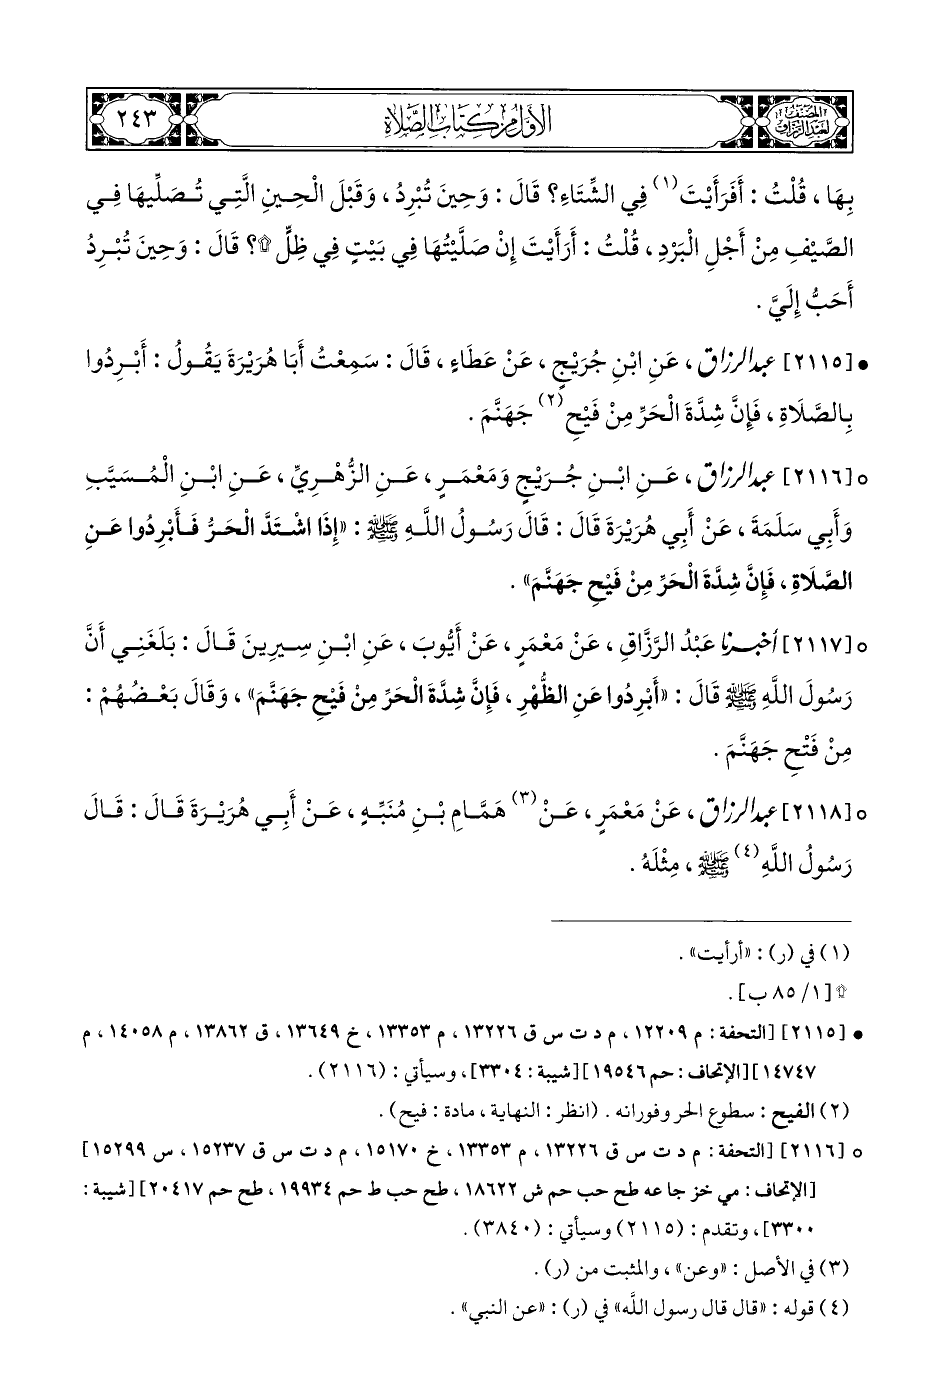 المصنف لعبد الرزاق
الأول من كتاب الصلاة
٢٤٣
بِهَا ، قُلْتُ : أَفَرَأَيْتَ (١) فِي الشِّتَاءِ؟ قَالَ : وَحِينَ تُبْرِدُ ، وَقَبْلَ الْحِينِ الَّتِي تُصَلِّيهَا فِي
الصَّيْفِ مِنْ أَجْلِ الْبَرْدِ ، قُلْتُ : أَرَأَيْتَ إِنْ صَلَّيْتُهَا فِي بَيْتٍ فِي ظِلٍّ ۩؟ قَالَ : وَحِينَ تُبْرِدُ
أَحَبُّ إِلَيَّ .
• [٢١١٥] عبد الرزاق ، عَنِ ابْنِ جُرَيْجٍ ، عَنْ عَطَاءٍ ، قَالَ : سَمِعْتُ أَبَا هُرَيْرَةَ يَقُولُ : أَبْرِدُوا
بِالصَّلَاةِ ، فَإِنَّ شِدَّةَ الْحَرِّ مِنْ فَيْحِ (٢) جَهَنَّمَ .
○ [٢١١٦] عبد الرزاق ، عَنِ ابْنِ جُرَيْجٍ وَمَعْمَرٍ ، عَنِ الزُّهْرِيِّ ، عَنِ ابْنِ الْمُسَيَّبِ
وَأَبِي سَلَمَةَ ، عَنْ أَبِي هُرَيْرَةَ قَالَ : قَالَ رَسُولُ اللَّهِ ﷺ : «إِذَا اشْتَدَّ الْحَرُّ فَأَبْرِدُوا عَنِ
الصَّلَاةِ ، فَإِنَّ شِدَّةَ الْحَرِّ مِنْ فَيْحِ جَهَنَّمَ» .
○ [٢١١٧] أخبرنا عَبْدُ الرَّزَّاقِ ، عَنْ مَعْمَرٍ ، عَنْ أَيُّوبَ ، عَنِ ابْنِ سِيرِينَ قَالَ : بَلَغَنِي أَنَّ
رَسُولَ اللَّهِ ﷺ قَالَ : «أَبْرِدُوا عَنِ الظُّهْرِ ، فَإِنَّ شِدَّةَ الْحَرِّ مِنْ فَيْحِ جَهَنَّمَ» ، وَقَالَ بَعْضُهُمْ :
مِنْ فَتْحِ جَهَنَّمَ .
○ [٢١١٨] عبد الرزاق ، عَنْ مَعْمَرٍ ، عَنْ (٣) هَمَّامِ بْنِ مُنَبِّهٍ ، عَنْ أَبِي هُرَيْرَةَ قَالَ : قَالَ
رَسُولُ اللَّهِ (٤) ﷺ ، مِثْلَهُ .
(١) في (ر) : «أرأيت» .
۩ [١/ ٨٥ ب] .
• [٢١١٥] [التحفة : م ١٢٢٠٩ ، م د ت س ق ١٣٢٢٦ ، م ١٣٣٥٣ ، خ ١٣٦٤٩ ، ق ١٣٨٦٢ ، م ١٤٠٥٨ ، م
١٤٧٤٧] [الإتحاف : حم ١٩٥٤٦] [شيبة : ٣٣٠٤] ، وسيأتي : (٢١١٦) .
(٢) الفيح : سطوع الحر وفورانه . (انظر : النهاية ، مادة : فيح) .
○ [٢١١٦] [التحفة : م د ت س ق ١٣٢٢٦ ، م ١٣٣٥٣ ، خ ١٥١٧٠ ، م د ت س ق ١٥٢٣٧ ، س ١٥٢٩٩]
[الإتحاف : مي خز جا عه طح حب حم ش ١٨٦٢٢ ، طح حب ط حم ١٩٩٣٤ ، طح حم ٢٠٤١٧] [شيبة :
٣٣٠٠] ، وتقدم : (٢١١٥) وسيأتي : (٣٨٤٠) .
(٣) في الأصل : «وعن» ، والمثبت من (ر) .
(٤) قوله : «قال قال رسول اللَّه» في (ر) : «عن النبي» .